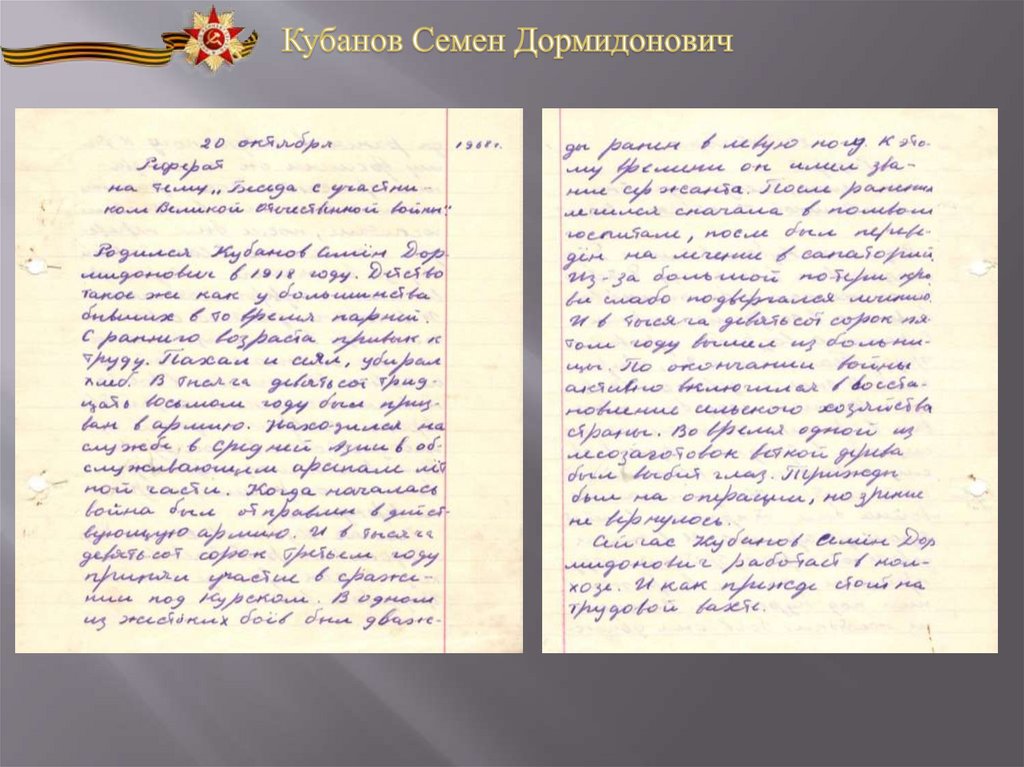 Кубанов Семен Дормидонович
20 октября 1968 г.
Реферат
на тему „Беседа с участни
ком Великой Отечественной войны."
Родился Кубанов Семён Дор-
мидонович в 1918 году. Детство
такое же как у большинства
бывших в то время парней.
С раннего возраста привык к
труду. Пахал и сеял, убирал
хлеб. В тысяча девятьсот трид-
цать восьмом году был приз-
ван в армию. Находился на
службе в Средней Азии в об-
служивающим арсенале лёт
ной части. Когда началась
война был отправлен в дейст-
вующую армию. И в тысяча
девятьсот сорок третьем году
принял участие в сраже-
нии под Курском. В одном
из жестоких боёв был дваж-
ды ранен в левую ногу. К это-
му времени он имел зва-
ние сержанта. После ранения
лечился сначала в полевом
госпитале, после был переве-
дён на лечение в санаторий
Из-за большой потери кро
ви слабо подвергался лечению.
И в тысяча девятьсот сорок пя-
том году вышел из больни-
цы. По окончании войны
активно включился в восста-
новление сельского хозяйства
страны. Во время одной из
лесозаготовок веткой дерева
был выбит глаз. Трижды
был на операции, но зрение
не вернулось.
Сейчас Кубанов Семён Дор
мидонович работает в кол-
хозе. И как прежде стоит на
трудовой вахте.